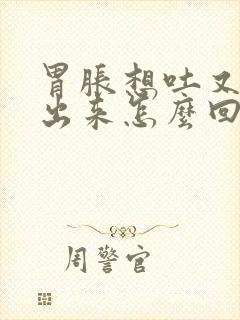 胃脹想吐又
出来怎麼回
周警官